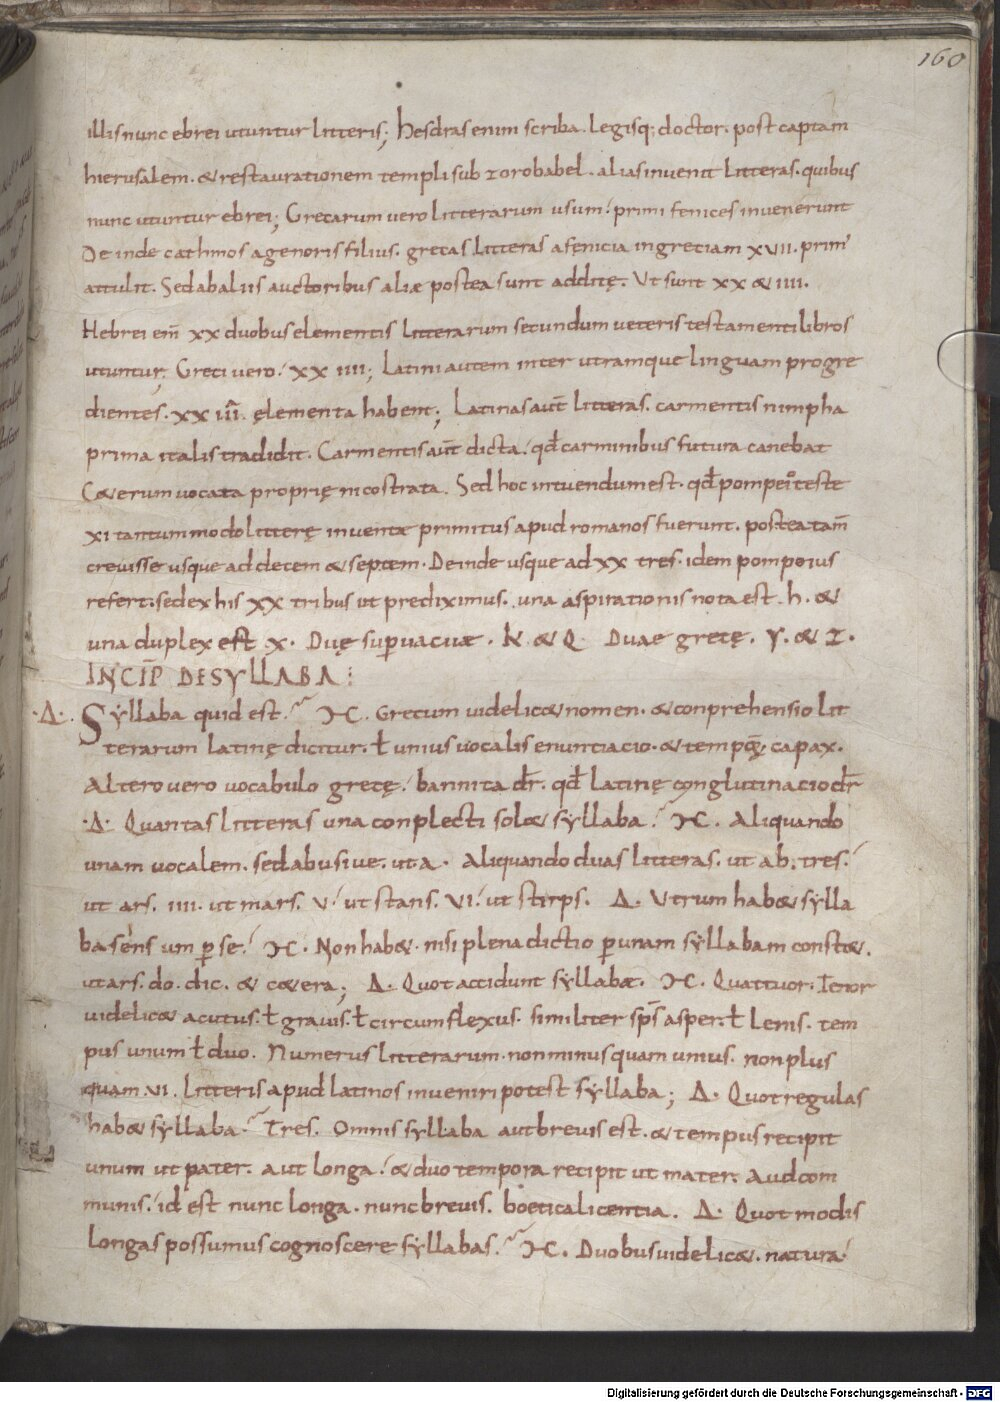 160
illis nunc ebrei utuntur litteris; hesdras enim scriba. legisq; doctor. post captam
hierusalem. & restaurationem templi sub zorobabel. alias invenit litteras. quibus
nunc utuntur ebrei; Grecarum vero litterarum usum. primi fenices invenerunt
Deinde cathmos agenoris filius. grecas litteras afenicia ingreciam XVII. prim'
attulit. Sed ab aliis auctoribus aliæ postea sunt additę. Ut sunt XX & IIII.
Hebrei em̄ XX duobus elementis litterarum secundum veteris testamenti libros
utuntur; Greci vero. XX IIII; Latini autem inter utramque linguam progre
dientes. XX III. ęlementa habent; Latinas aut̄ litteras. carmentis nimpha
prima italis tradidit. Carmentis aut̄ dicta. qd̄ carminibus futura canebat
C&erum vocata proprię nicostrata. Sed hoc intuendum est. qd̄ pompeio teste
XI tantummodo litterę inventæ primitus apud romanos fuerunt. postea tam̄
crevisse usque ad decem & septem. Deinde usque ad XX tres. idem pompeius
refert. sed ex his XX tribus ut prediximus. una aspirationis nota est. h. &
una duplex est X. Duę sup̄vacuæ. K. & Q. Duae gręcę. Y. & Z.
INCIP̄ DE SYLLABA:
·Δ· Syllaba quid est. M. Grecum videlic& nomen. & conprehensio lit
terarum latinę dicitur. ł unius vocalis enuntiacio. & tempoꝝ capax.
Altero vero vocabulo grecę. bannita dr̄. qd̄ latinę conglutinacio dr̄
·Δ· Quantas litteras una conplecti sol& syllaba. M. Aliquando
unam vocalem. sed abusive. ut a. Aliquando duas litteras. ut ab. tres.
ut ars. IIII. ut mars. V. ut stans. VI. ut stirps. Δ. Utrum hab& sylla
ba sensum p̱ se. M. Non hab&. nisi plena dictio p̱ unam syllabam const&.
ut ars. do. dic. & c&era; Δ. Quot accidunt syllabæ. M. Quattuor. Tenor
videlic& acutus. ł gravis. ł circumflexus. similiter sps̄ asper. ł lenis. tem
pus unum ł duo. Numerus litterarum. non minus quam unius. non plus
quam VI. litteris apud latinos inveniri potest syllaba; Δ. Quot regulas
hab& syllaba. Tres. Omnis syllaba aut brevis est. & tempus recipit
unum ut pater. aut longa. & duo tempora recipit ut mater. Aud com
munis. id est nunc longa. nunc brevis. boetica licentia. Δ. Quot modis
longas possumus cognoscere syllabas. M. Duobus videlic&. natura
Digitalisierung gefördert durch die Deutsche Forschungsgemeinschaft - DFG